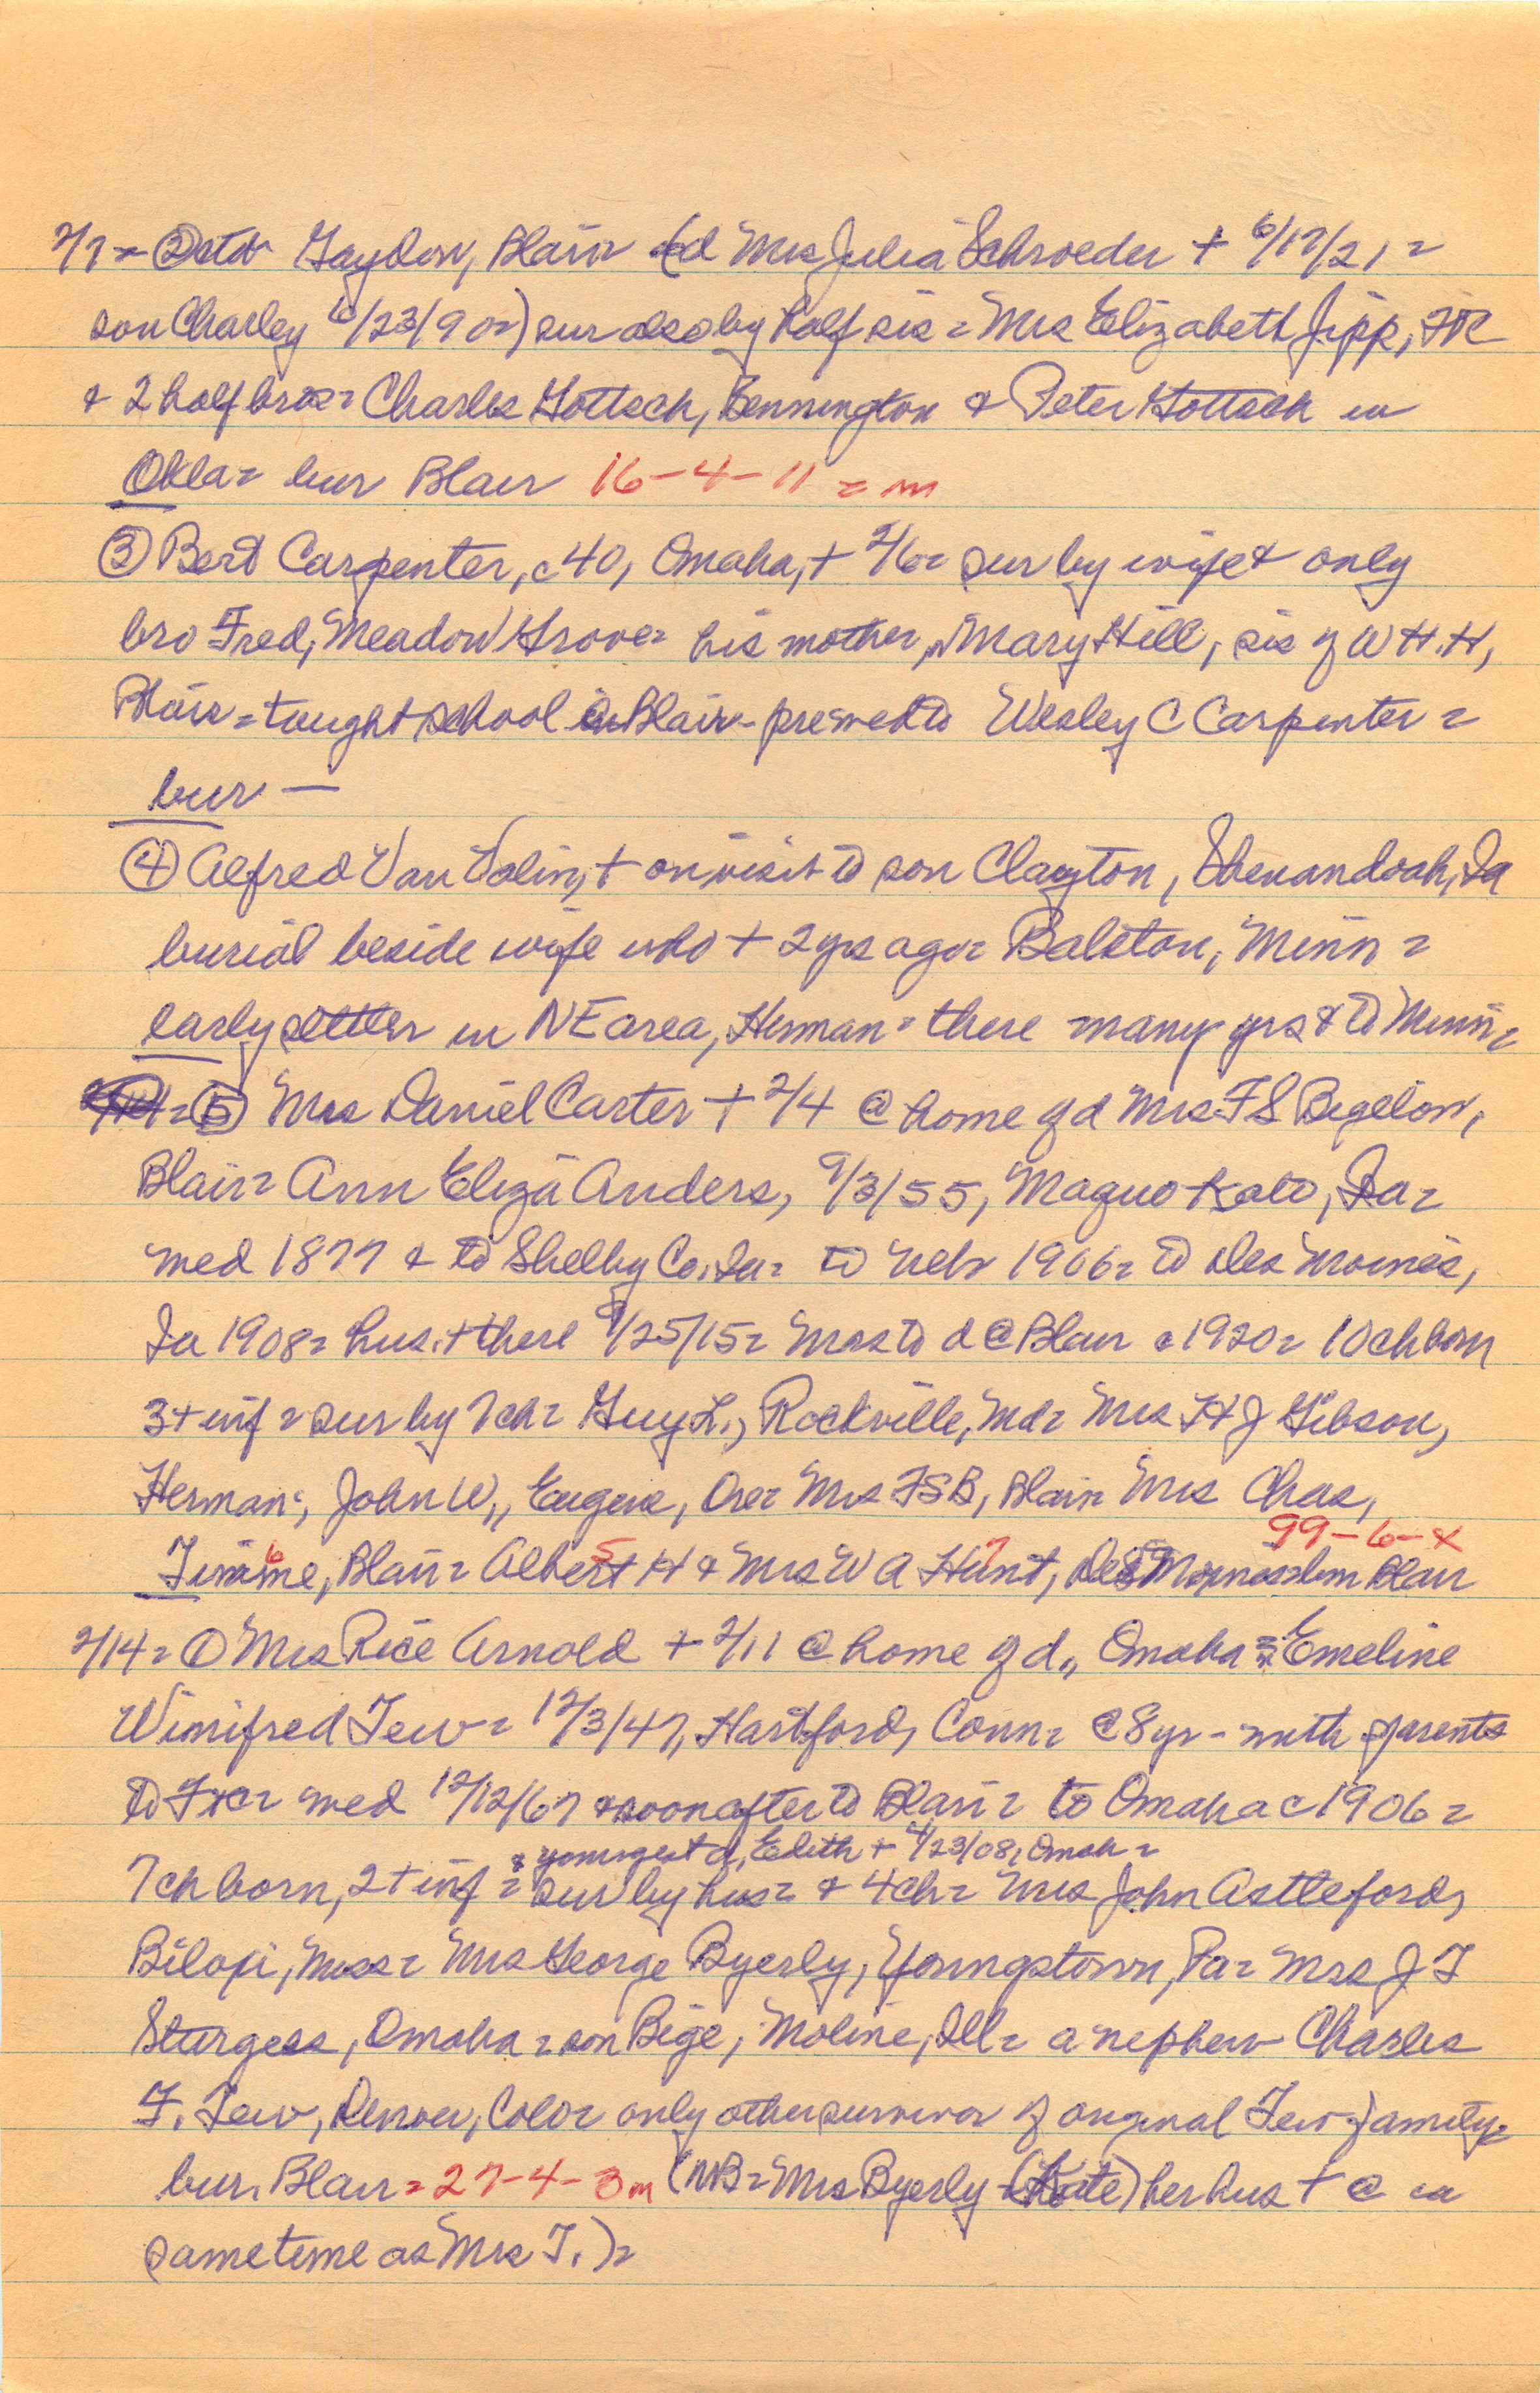 2/7 = ② Gaylon, Blair (d Mrs Julia Schroeder + 6/17/21 =
son Charley 6/23/90=) sur also by half sis = Mrs Elizabeth Jipp,
& 2 half bros = Charles Gottsch, Bennington & Peter Gottsch in
Okla = bur Blair 16-4-11 = m
③ Bert Carpenter, c 40, Omaha, + 2/6 = sur by wife & only
bro Fred, Meadow Grove = his mother, Mary Hill, sis of W H. H,
Blair = taught school in Blair - prev med to Wesley C Carpenter =
bur —
④ Alfred Van Valin, + on visit to son Clayton, Shenandoah, Ia
burial beside wife who + 2 yrs ago = Balaton, Minn =
early settler in NE area, Herman = there many yrs & to Minn =
= ⑤ Mrs Daniel Carter + 2/4 @ home of d Mrs F S Bigelow,
Blair = Ann Eliza Anders, 9/3/55, Maquoketo, Ia =
med 1877 & to Shelby Co. Ia = to Nebr 1906 = to Des Moines,
Ia 1908 = hus. + there 9/25/15 = Mrs to d @ Blair c 1920 = 10 ch born
3 + inf = sur by 7 ch = Guy L., Rockville, Md = Mrs H J Gibson,
Herman =, John W,, Eugene, Ore = Mrs FSB, Blair = Mrs Chas,
99-6-8
Timme, 6 Blair = Albert 5 H & Mrs W A Hunt, 7 Des Moines = bur Blair
2/14 = ① Mrs Rice Arnold + 2/11 @ home of d,, Omaha = Emeline
Winifred Tew = 12/3/47, Hartford, Conn = @ 8 yr - with parents
to = med 12/12/67 & soon after to Blair = to Omaha c 1906 =
& youngest d, Edith + 4/23/08, Omah =
7 ch born, 2 + inf = sur by hus = & 4 ch = Mrs John Astleford,
Biloxi, Miss = Mrs George Byerly, Youngstown, Pa = Mrs J T
Sturgess, Omaha = son Bige, Moline, Ill = a nephew Charles
F. Tew, Denver, Colo = only other survivor of original Tew family =
bur. Blair = 27-4-3 m (NB = Mrs Byerly = (Kate) her hus + @ ca
same time as Mrs T.) =